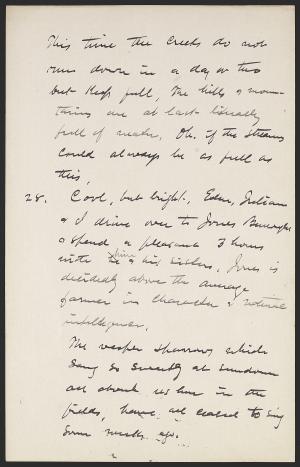 This time the creeks do not
run down in a day or two
but keep full, the hills & moun-
tains are at last literally
full of water. Oh, if the streams
could always be as full as
this,
28. Cool, but bright, Eden, Julian
& I drive over to Jones Burroughs
& spend a pleasant 3 hours
with him & his sisters, Jones is
decidedly above the average
farmer in character & natural
intelligence.
The vesper sparrows which
sang so sweetly at sundown
all about us here in the
fields, have all ceased to sing
some weeks ago.